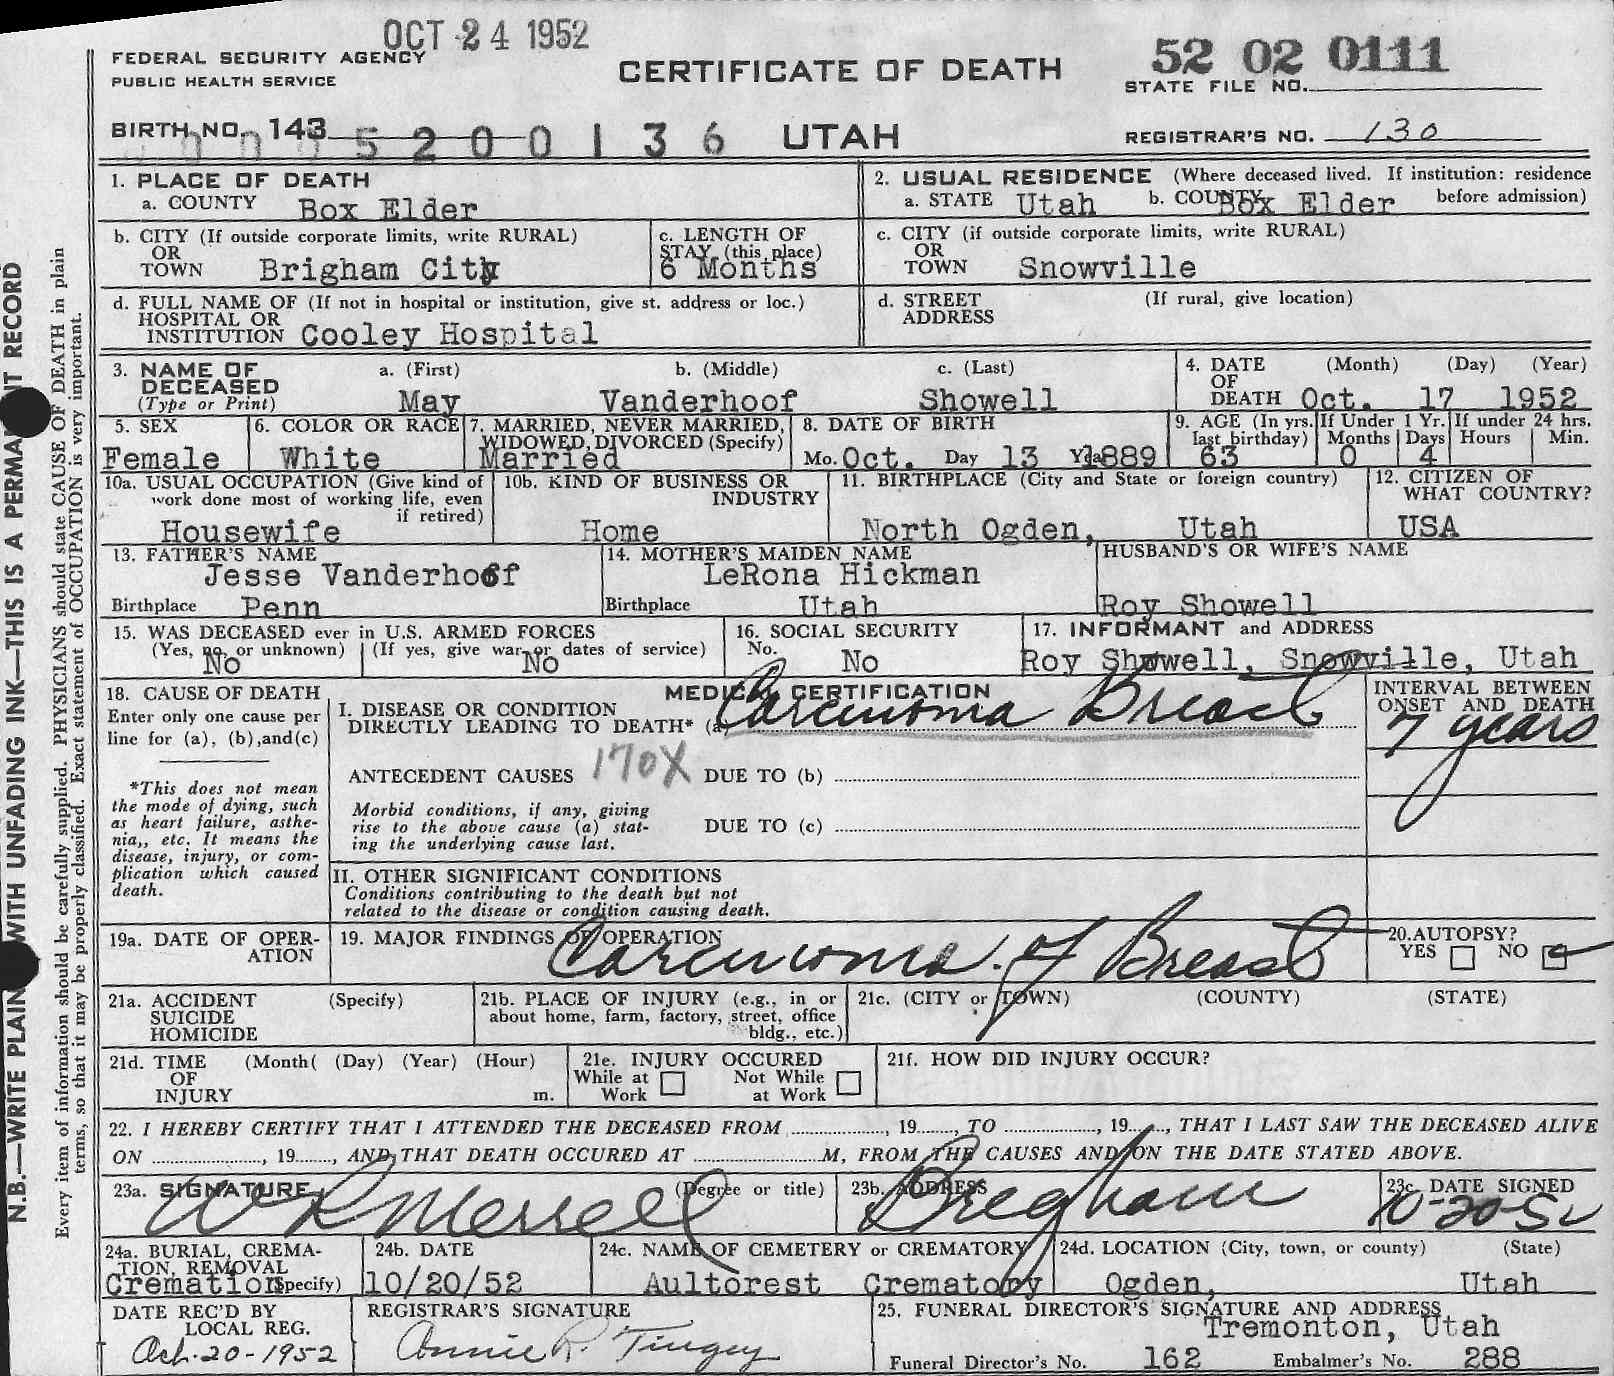 OCT 24 1952
FEDERAL SECURITY AGENCY
PUBLIC HEALTH SERVICE
CERTIFICATE OF DEATH
52 02 0111
STATE FILE NO.
BIRTH NO. 143
5200136
UTAH
REGISTRAR'S NO. 130
1. PLACE OF DEATH
a. COUNTY Box Elder
2. USUAL RESIDENCE (Where deceased lived. If institution: residence before admission)
a. STATE Utah b. COUNTY Box Elder
b. CITY (If outside corporate limits, write RURAL)
OR
TOWN Brigham City
c. LENGTH OF
STAY (this place)
6 Months
c. CITY (if outside corporate limits, write RURAL)
OR
TOWN Snowville
d. FULL NAME OF (If not in hospital or institution, give st. address or loc.)
HOSPITAL OR
INSTITUTION Cooley Hospital
d. STREET (If rural, give location)
ADDRESS
3. NAME OF DECEASED
(Type or Print)
a. (First) b. (Middle) c. (Last)
May Vanderhoof Showell
4. DATE OF DEATH (Month) (Day) (Year)
Oct. 17 1952
5. SEX
Female
6. COLOR OR RACE
White
7. MARRIED, NEVER MARRIED,
WIDOWED, DIVORCED (Specify)
Married
8. DATE OF BIRTH
Mo. Oct. Day 13 Year 1889
9. AGE (In yrs. last birthday) 63
If Under 1 Yr. Months 0 Days 4
If under 24 hrs. Hours Min.
10a. USUAL OCCUPATION (Give kind of
work done most of working life, even
if retired)
Housewife
10b. KIND OF BUSINESS OR
INDUSTRY
Home
11. BIRTHPLACE (City and State or foreign country)
North Ogden, Utah
12. CITIZEN OF
WHAT COUNTRY?
USA
13. FATHER'S NAME
Jesse Vanderhoof
Birthplace Penn
14. MOTHER'S MAIDEN NAME
LeRona Hickman
Birthplace Utah
HUSBAND'S OR WIFE'S NAME
Roy Showell
15. WAS DECEASED ever in U.S. ARMED FORCES
(Yes, no, or unknown) (If yes, give war or dates of service)
No No
16. SOCIAL SECURITY
No.
No
17. INFORMANT and ADDRESS
Roy Showell, Snowville, Utah
18. CAUSE OF DEATH
Enter only one cause per
line for (a), (b),and(c)
*This does not mean
the mode of dying, such
as heart failure, asthe-
nia,, etc. It means the
disease, injury, or com-
plication which caused
death.
MEDICAL CERTIFICATION
I. DISEASE OR CONDITION
DIRECTLY LEADING TO DEATH* (a) Carcinoma Breast
ANTECEDENT CAUSES 170X DUE TO (b)
Morbid conditions, if any, giving
rise to the above cause (a) stat-
ing the underlying cause last.
DUE TO (c)
INTERVAL BETWEEN
ONSET AND DEATH
7 years
II. OTHER SIGNIFICANT CONDITIONS
Conditions contributing to the death but not
related to the disease or condition causing death.
19a. DATE OF OPER-
ATION
19. MAJOR FINDINGS OF OPERATION
Carcinoma of Breast
20. AUTOPSY?
YES NO
21a. ACCIDENT (Specify)
SUICIDE
HOMICIDE
21b. PLACE OF INJURY (e.g., in or
about home, farm, factory, street, office
bldg., etc.)
21c. (CITY or TOWN) (COUNTY) (STATE)
21d. TIME (Month( (Day) (Year) (Hour)
OF
INJURY m.
21e. INJURY OCCURED
While at Work Not While at Work
21f. HOW DID INJURY OCCUR?
22. I HEREBY CERTIFY THAT I ATTENDED THE DECEASED FROM , 19 , TO , 19 , THAT I LAST SAW THE DECEASED ALIVE
ON , 19 , AND THAT DEATH OCCURED AT M, FROM THE CAUSES AND ON THE DATE STATED ABOVE.
23a. SIGNATURE (Degree or title)
W R Merrell
23b. ADDRESS
Brigham
23c. DATE SIGNED
10-20-52
24a. BURIAL, CREMA-
TION, REMOVAL
(Specify)
Cremation
24b. DATE
10/20/52
24c. NAME OF CEMETERY or CREMATORY
Aultorest Crematory
24d. LOCATION (City, town, or county) (State)
Ogden, Utah
DATE REC'D BY
LOCAL REG.
Oct. 20-1952
REGISTRAR'S SIGNATURE
Annie R. Tingey
25. FUNERAL DIRECTOR'S SIGNATURE AND ADDRESS
Tremonton, Utah
Funeral Director's No. 162 Embalmer's No. 288
N.B.—WRITE PLAIN WITH UNFADING INK—THIS IS A PERMA NT RECORD
Every item of information should be carefully supplied. PHYSICIANS should state CAUSE OF DEATH in plain
terms, so that it may be properly classified. Exact statement of OCCUPATION is very important.